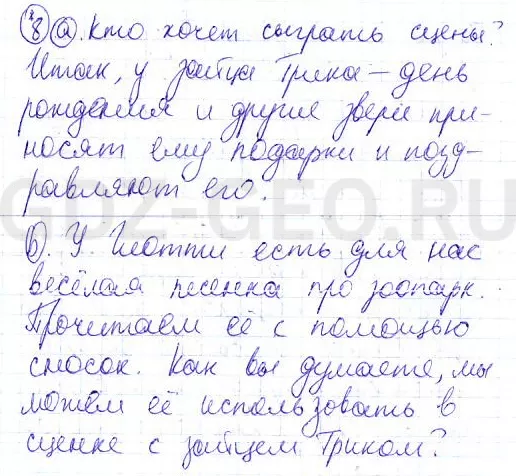 8 а). Кто хочет сыграть сцены?
Итак, у зайца Трика – день
рождения и другие звери при-
носят ему подарки и позд-
равляют его.
GDZ-GEO.RU
b). У Шотти есть для нас
весёлая песенка про зоопарк.
Прочитаем её с помощью
сносок. Как вы думаете, мы
можем её использовать в
сценке с зайцем Триком?